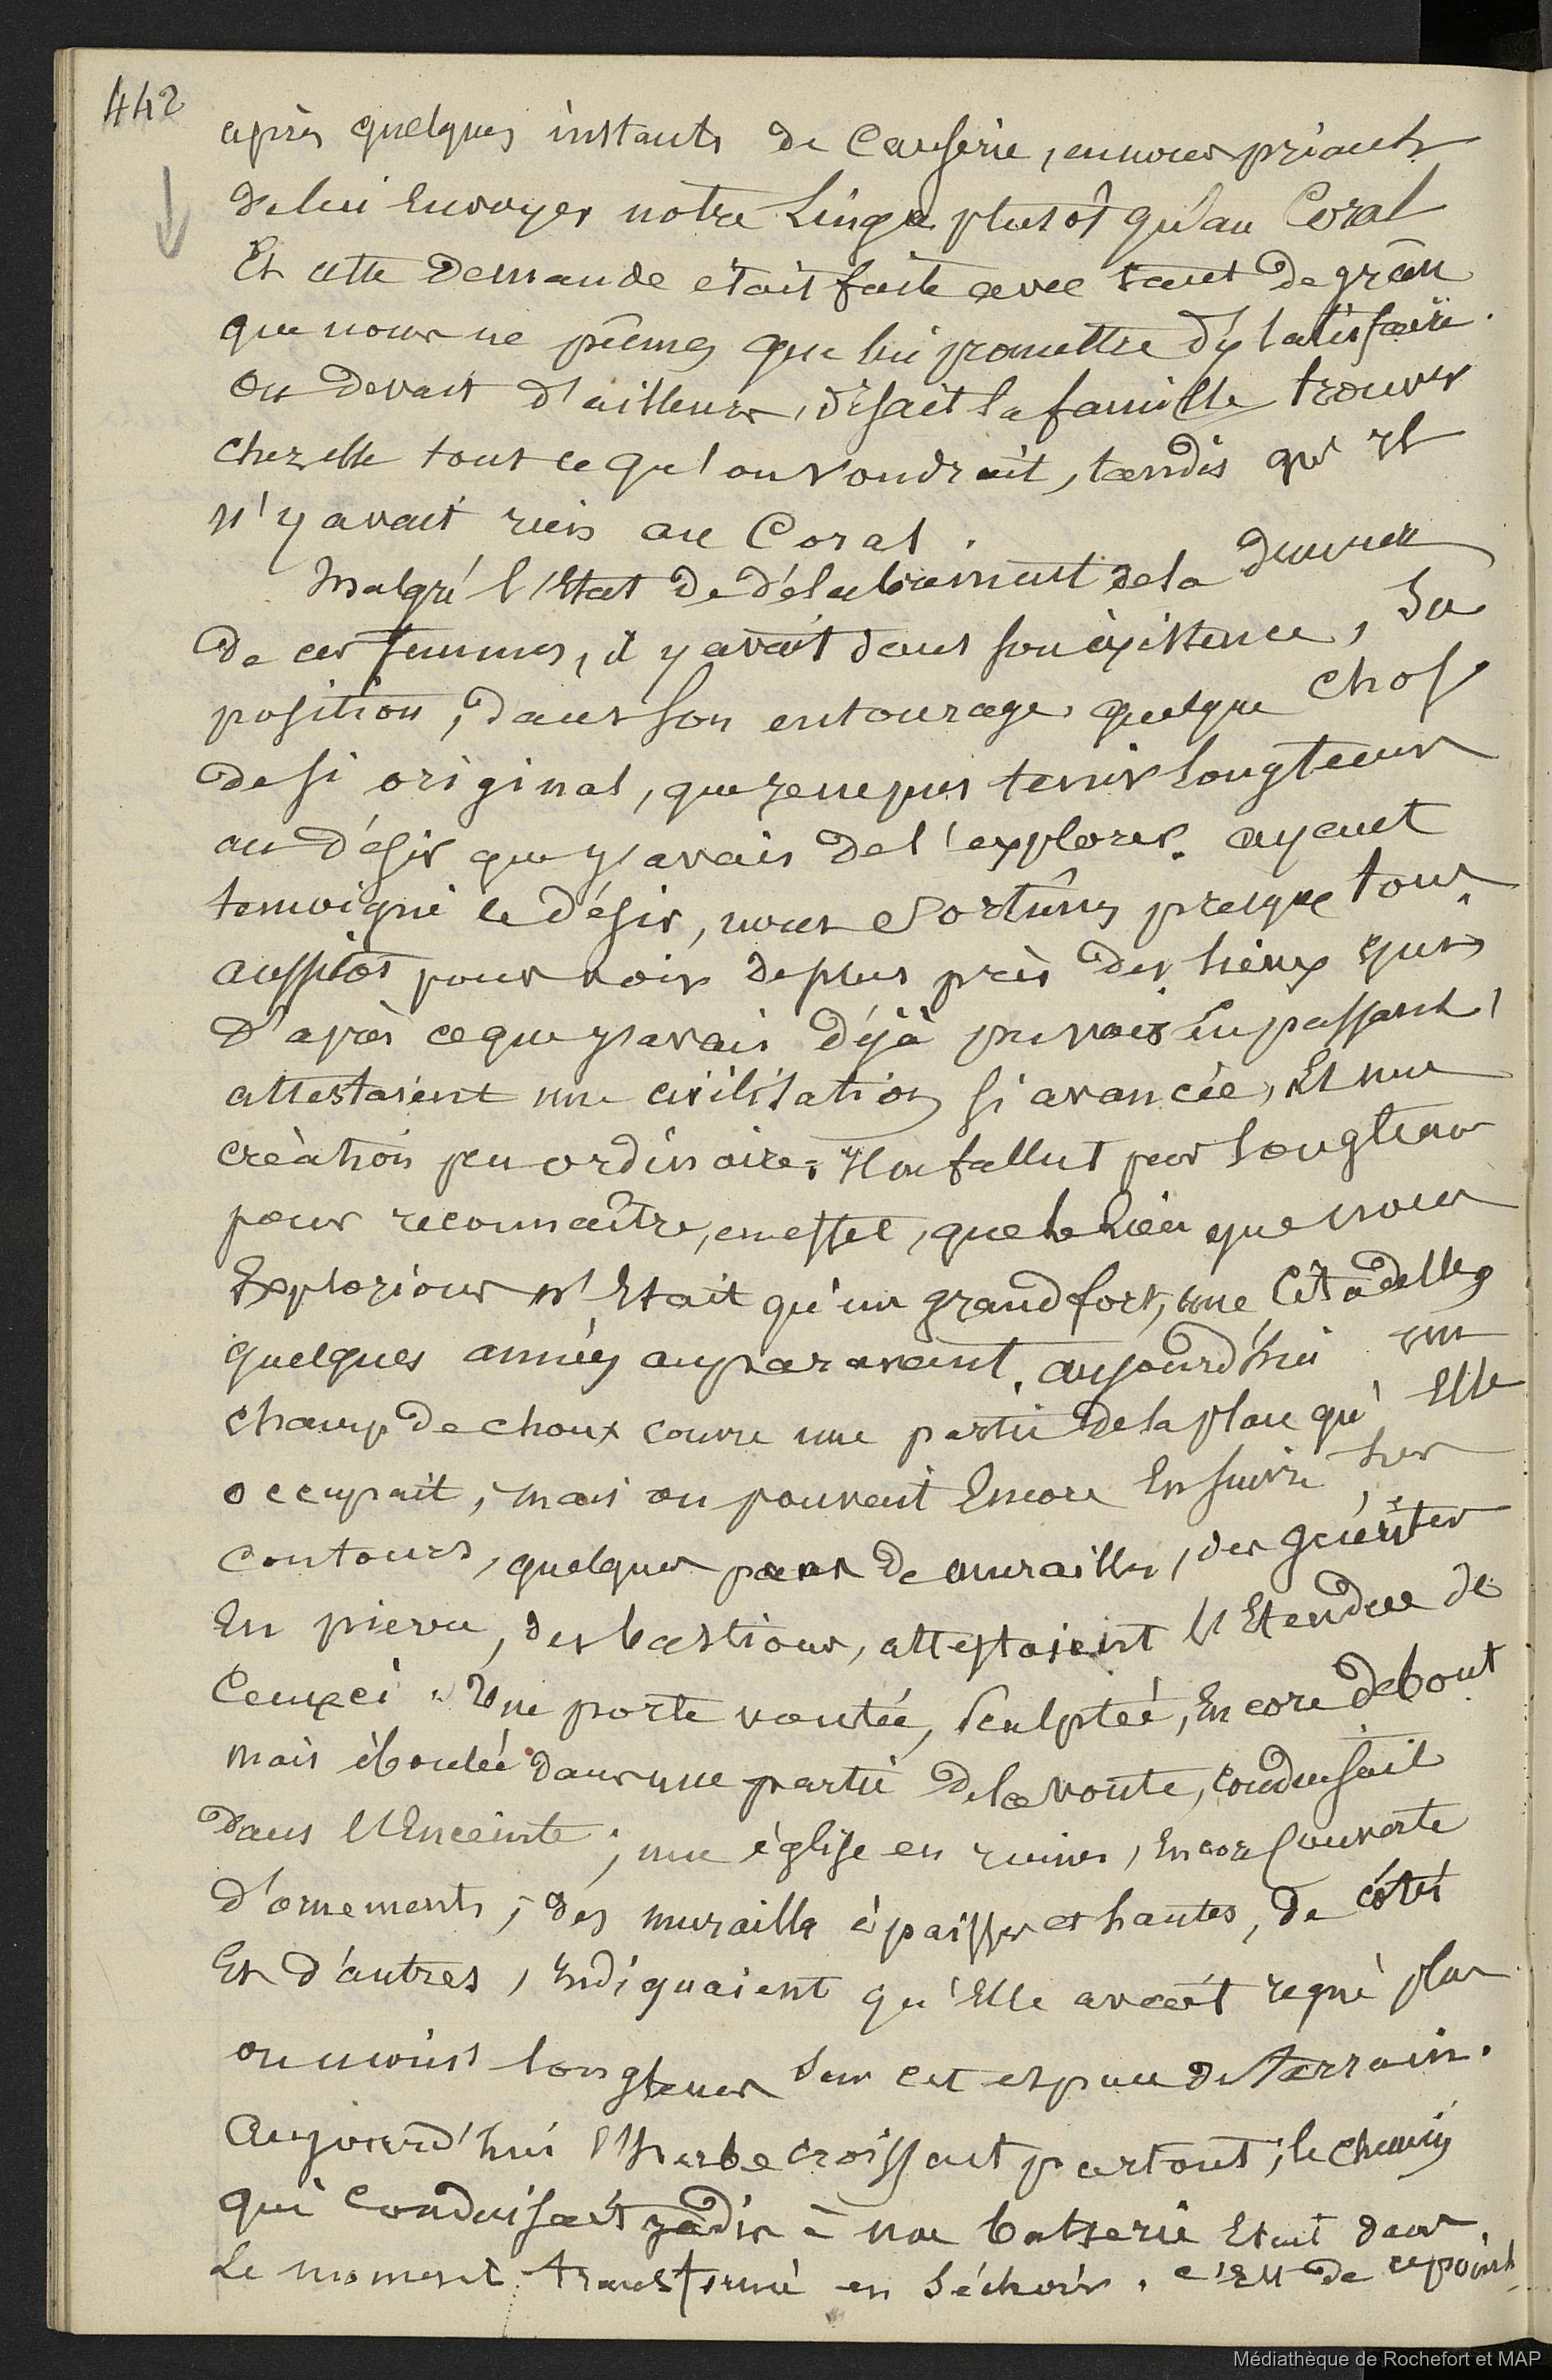 442
après quelques instants de Causerie, en nous priant
de lui Envoyer notre Linge plutôt qu'au Coral
Et cette Demande etait faite avec tant de
que nous ne pûmes que lui promettre d'y satisfaire.
On devait d'ailleurs, disait la famille trouver
chez elle tout ce qu'on voudrait, tandis qu'il
n'y avait rien au Coral.
Malgré l'Etat de délabrement de la demeure
de ces femmes, il y avait dans son éxistence, sa
position, dans son entourage, quelque chose
de si original, que je ne pus tenir longtems
au désir que j'avais de l'explorer. ayant
temoigné le désir, nous sortîmes presque tous
aussitôt pour voir de plus près des lieux qui
d'après ce que j'avais déjà pu voir En passant,
attestaient une civilisation si avancée, Et une
création peu ordinaire. Il ne fallut pas longtems
pour reconnaître, en effet, que le Lieu que nous
Explorions n'Etait qu'un grand fort, une Citadelle
quelques années auparavant. aujourd'hui un
champ de choux couvre une partie de la place qu'Elle
occupait, mais on pouvait Encore En suivre les
contours, quelques pans de murailles, des guérites
En pierre, des bastions, attestaient l'Etendue de
Ceux ci. Une porte voutée, sculptée, Encore debout
mais éboulée dans une partie de la voute, conduisait
dans l'Enceinte; une église en ruines, Encore couverte
d'ornements; des murailles épaisses et hautes, de côtés
Et d'autres, Indiquaient qu'Elle avait regné plus
ou moins longtems sur cet espace de terrain.
Aujourd'hui l'Herbe croissait partout; le chemin
qui Conduisait jadis à une batterie Etait dans
Le moment transformé en séchoir. C'Est de ce point
Médiathèque de Rochefort et MAP